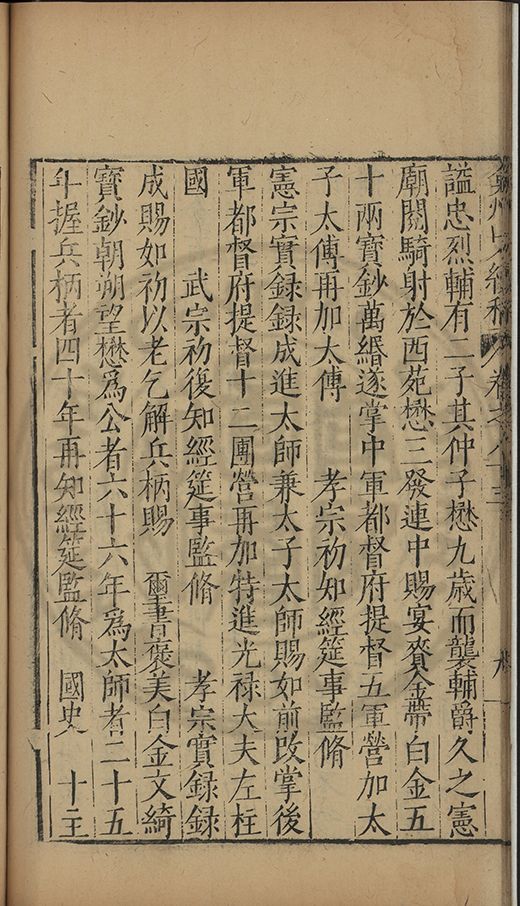 諡忠烈輔有二子其仲子懋九歲而襲輔爵久之憲
廟閱騎射於西苑懋三發連中賜宴賚金帶白金五
十兩寶鈔萬緡遂掌中軍都督府提督五軍營加太
子太傅再加太傅　孝宗初知經筵事監脩
憲宗實録録成進太師兼太子太師賜如前改掌後
軍都督府提督十二團營再加特進光禄大夫左柱
國　武宗初復知經筵事監脩　孝宗實録録
成賜如初以老乞解兵柄賜　爾書褒美白金文綺
寶鈔朝朔望懋爲公者六十六年爲太師者二十五
年握兵柄者四十年再知經筵監脩　國史　十主